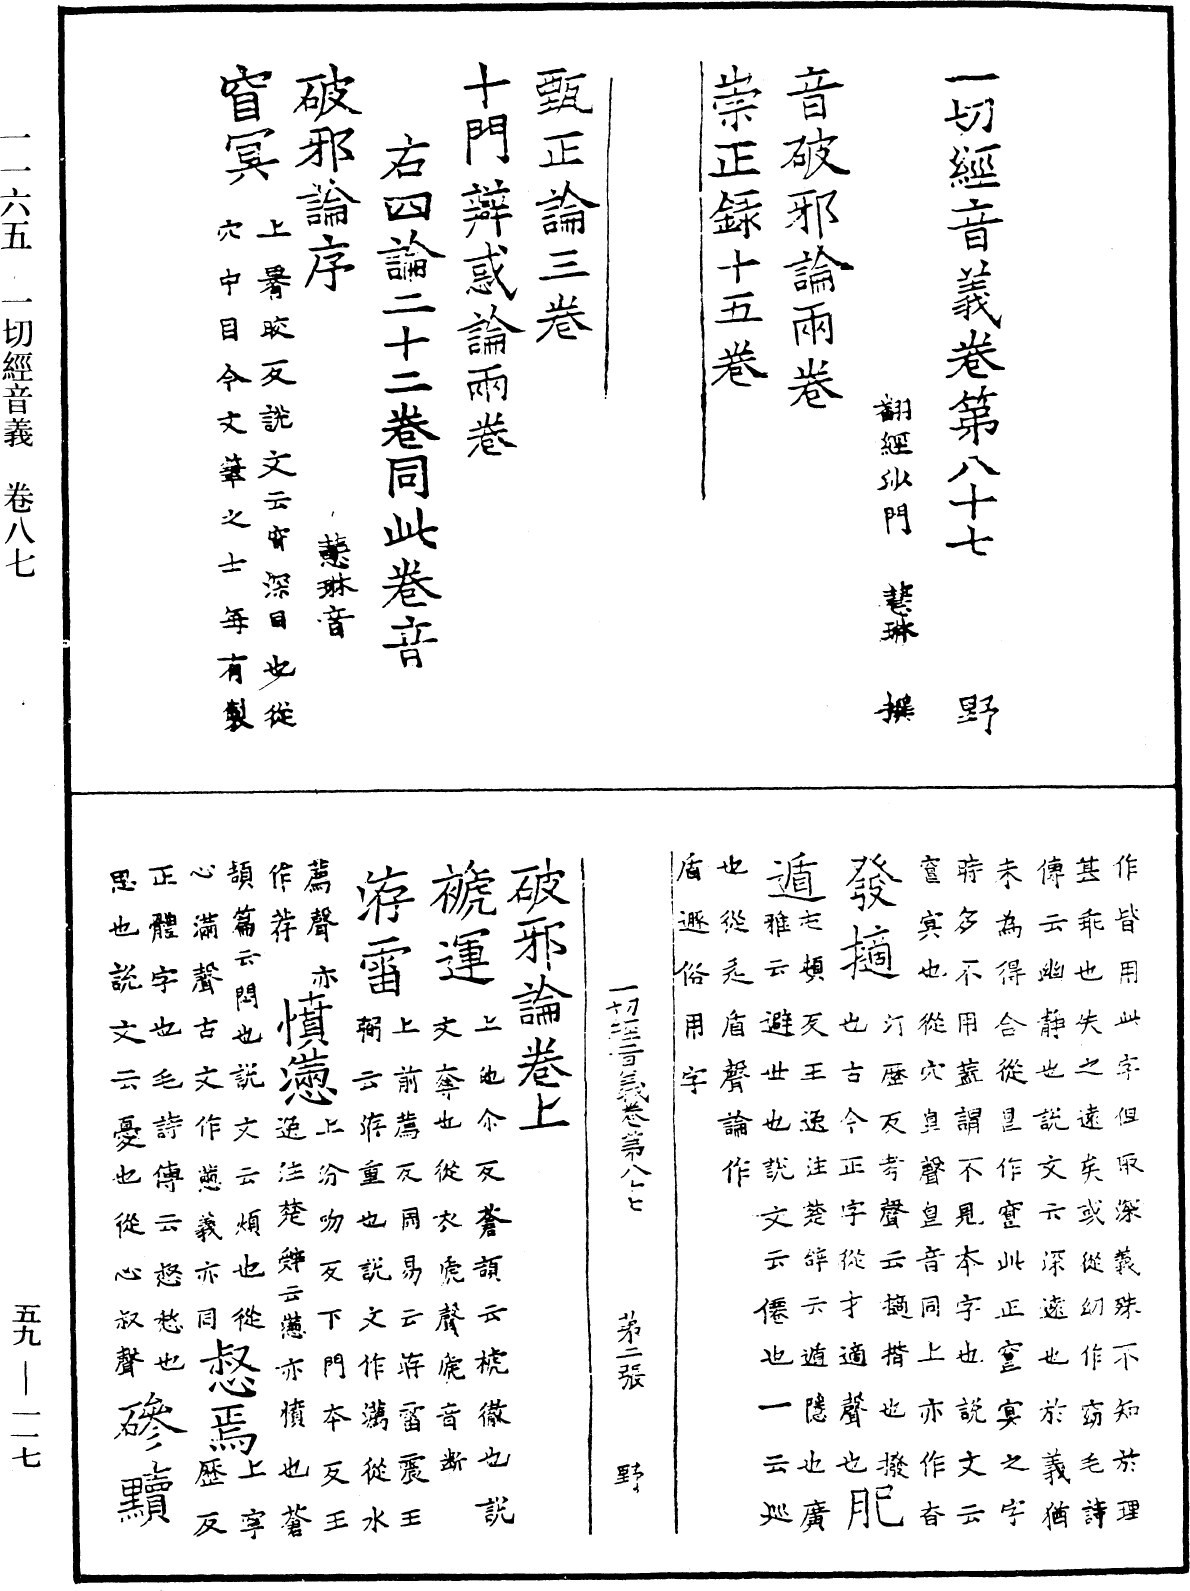 一切經音義卷第八十七　野
翻經沙門　慧琳　撰
音破邪論兩卷
崇正録十五卷
甄正論三卷
十門辯惑論兩卷
右四論二十二卷同此卷音
破邪論序　慧琳音
窅冥
上畧皎反說文云窅深目也從
穴中目今文筆之士每有製
作皆用此字但取深義殊不知於理
甚乖也失之遠矣或從幼作窈毛詩
傳云幽静也説文云深遠也於義猶
未為得合從皀作窓此正窓冥之字
時多不用蓋謂不見本字也説文云
窓冥也從穴皀聲皀音同上亦作杳
發擿
汀歷反考聲云擿揩也撥
也古今正字從才適聲也
肥
遁
屯頓反王逸注楚辞云遁隱也廣
雅云避世也説文云僊也一云巡
也從辵盾聲論作
遯俗用字
一切經音義卷第八十七　第二張　野
破邪論卷上
褫運
上池尒反蒼頡云褫徹也説
文奪也從衣虒聲虒音斯
洊雷
上前薦反周易云洊雷震王
弼云洊重也説文作瀳從水
薦聲亦
作荐
憤懣
上汾吻反下門本反王
逸注楚辭云懣亦憤也蒼
頡篇云悶也説文云煩也從
心滿聲古文作懑義亦同
惄焉
上寧
歷反
正體字也毛詩傳云惄愁也
思也説文云憂也從心叔聲
磣黷
一一六五　一切經音義　卷八七
五九—一一七